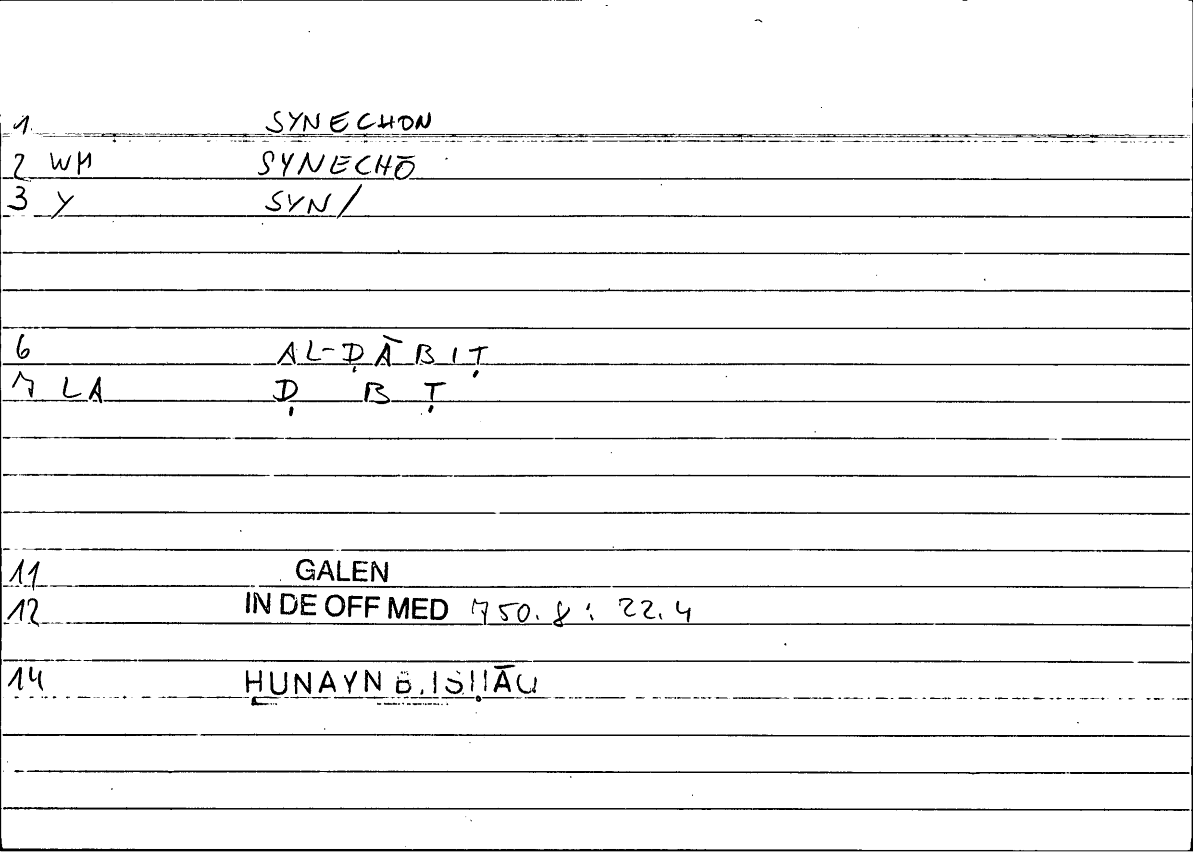 1. SYNECHON
2 WM SYNECHŌ
3 Y SYN/
6 AL-ḌĀBIṬ
7 LA Ḍ B Ṭ
11 GALEN
12 IN DE OFF MED 750.8 : 22.4
14 ḤUNAYN B. ISḤĀQ